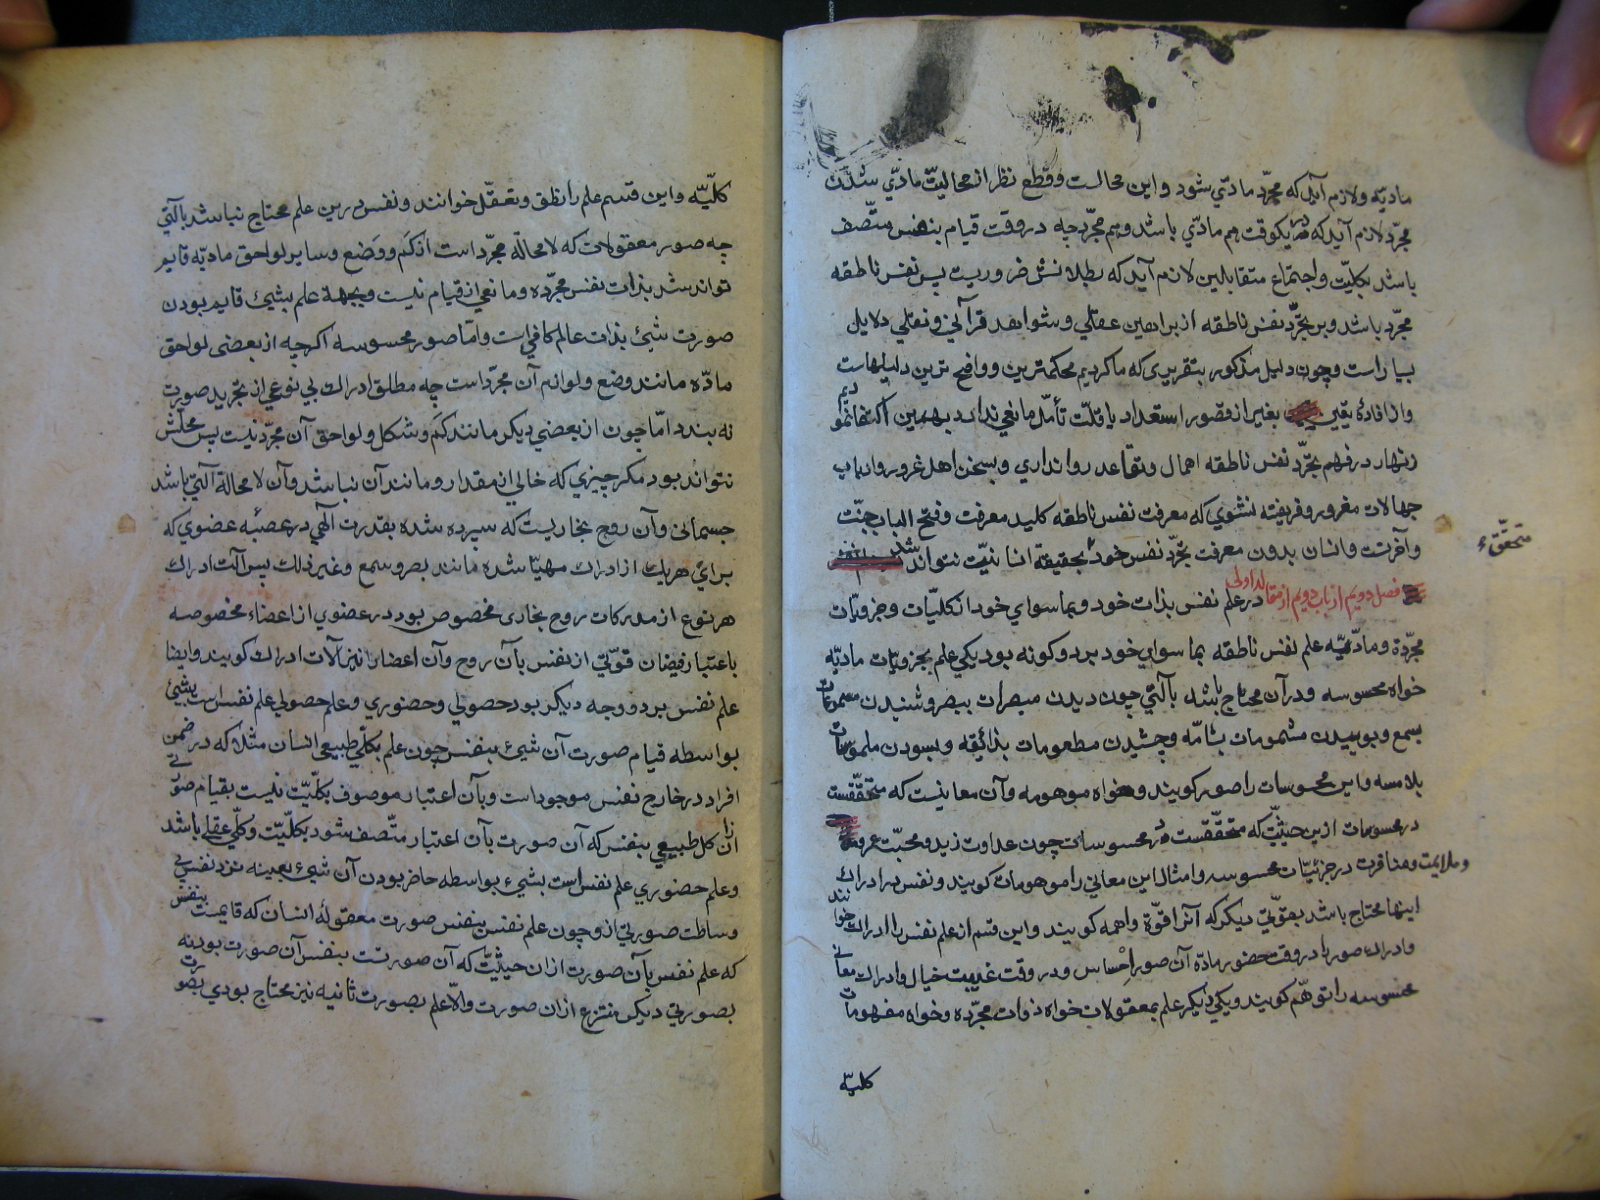 مادیّه ولازم آید که مجرّد مادّی شود واین محالست وقطع نظر از محالیّت مادّی شدن
مجرّد لازم آید که در یکوقت هم مادّی باشد وهم مجرّد چه در وقت قیام بنفس متّصف
باشد بکلیّت واجتماع متقابلین لازم آید که بطلانش ضروریست پس نفس ناطقه
مجرّد باشد وبر تجرّد نفس ناطقه از براهین عقلی وشواهد قرآنی ونقلی دلایل
بسیار است وچون دلیل مذکور بتقریری که ما کردیم محکمترین وواضح ترین دلیلهاست
واز افادهٔ یقین بغیر از قصور استعداد یا قلّت تأمّل مانعی ندارد بهمین اکتفا نمودیم
زنهار در فهم تجرّد نفس ناطقه اهمال وتقاعد روا نداری وبسخن اهل غرور وارباب
جهالات مغرور وفریفته نشوی که معرفت نفس ناطقه کلید معرفت وفتح الباب جنّت
وآخرتست وانسان بدون معرفت تجرّد نفس خود بحقیقة انسانیّت نتواند شد
متحقّق
فصل دویم از باب دویم از مقاله اولی در علم نفس بذات خود وبما سوای خود از کلیّات وجزویّات
مجرّدة ومادّیّه علم نفس ناطقه بما سوای خود بر دو کونه بود یکی علم بجزویّات مادیّه
خواه محسوسه ودر آن محتاج باشد بآلتی چون دیدن مبصرات ببصر وشنیدن مسموعات
بسمع وبوییدن مشمومات بشامّه وچشیدن مطعومات بذائقه وبسودن ملموسات
بلامسه واین محسوسات را صور کویند وخواه موهومه وآن معانیست که متحقّقست
در محسوسات ازین حیثیّت که متحقّقست در محسوسات چون عداوت زید ومحبّت عمرو
وملایمت ومنافرت در جزئیّات محسوسه وامثال این معانی را موهومات کویند ونفس در ادراک
اینها محتاج باشد بقوّتی دیکر که آنرا قوّة واهمه کویند واین قسم از علم نفس را ادراک خوانند
وادراک صور را در وقت حضور مادّه آن صور احساس ودر وقت غیبت خیال وادراک معانی
محسوسه را توهّم کویند ویکی دیکر علم بمعقولات خواه ذوات مجرّده وخواه مفهومات
کلیّه
کلّیّه واین قسم علم را نطق وتعقّل خوانند ونفس درین علم محتاج نباشد بآلتی
چه صور معقولات که لا محالة مجرّد است از کم ووضع وسایر لواحق مادیّه قایم
تواند شد بذات نفس مجرّده ومانعی از قیام نیست وبجهة علم بشیئ قایم بودن
صورت شیئ بذات عالم کافی است وامّا صور محسوسه اکرچه از بعضی لواحق
مادّه مانند وضع ولوازم آن مجرّد است چه مطلق ادراک بی نوعی از تجرید صورت
نه بندد امّا چون از بعضی دیکر مانند کم وشکل ولواحق آن مجرّد نیست پس محلّش
نتواند بود مکر چیزی که خالی از مقدار ومانند آن نباشد وآن لا محالة آلتی باشد
جسمانی وآن روح بخاریست که سپرده شده بقدرت الٓهی در عصبهٔ عضوی که
برای هریک از ادراک مهیّا شده مانند بصر وسمع وغیر ذلک پس آلت ادراک
هر نوع از مدرکات روح بخاری مخصوص بود در عضوی از اعضاء مخصوصه
باعتبار فیضان قوّتی از نفس بآن روح وآن اعضا را نیز آلات ادراک کویند وایضا
علم نفس بر دو وجه دیکر بود حصولی وحضوری وعلم حصولی علم نفس است بشیئ
بواسطه قیام صورت آن شیئ بنفس چون علم بکلّی طبیعی انسان مثلا که در ضمن
افراد در خارج نفس موجود است وبآن اعتبار موصوف بکلّیّت نیست بقیام صورتی
از آن کل طبیعی بنفس که آن صورت بآن اعتبار متّصف شود بکلّیّت وکلّی عقلی باشد
وعلم حضوری علم نفس است بشیئ بواسطه حاضر بودن آن شیئ بعینه نزد نفس بی
وساطت صورتی از و چون علم نفس بنفس صورت معقولهٔ انسان که قایمست بنفس
که علم نفس بآن صورت از ان حیثیّت که آن صورتست بنفس آن صورت بود نه
بصورتی دیکر منتزع از ان صورت والّا علم بصورت ثانیه نیز محتاج بودی بصورت